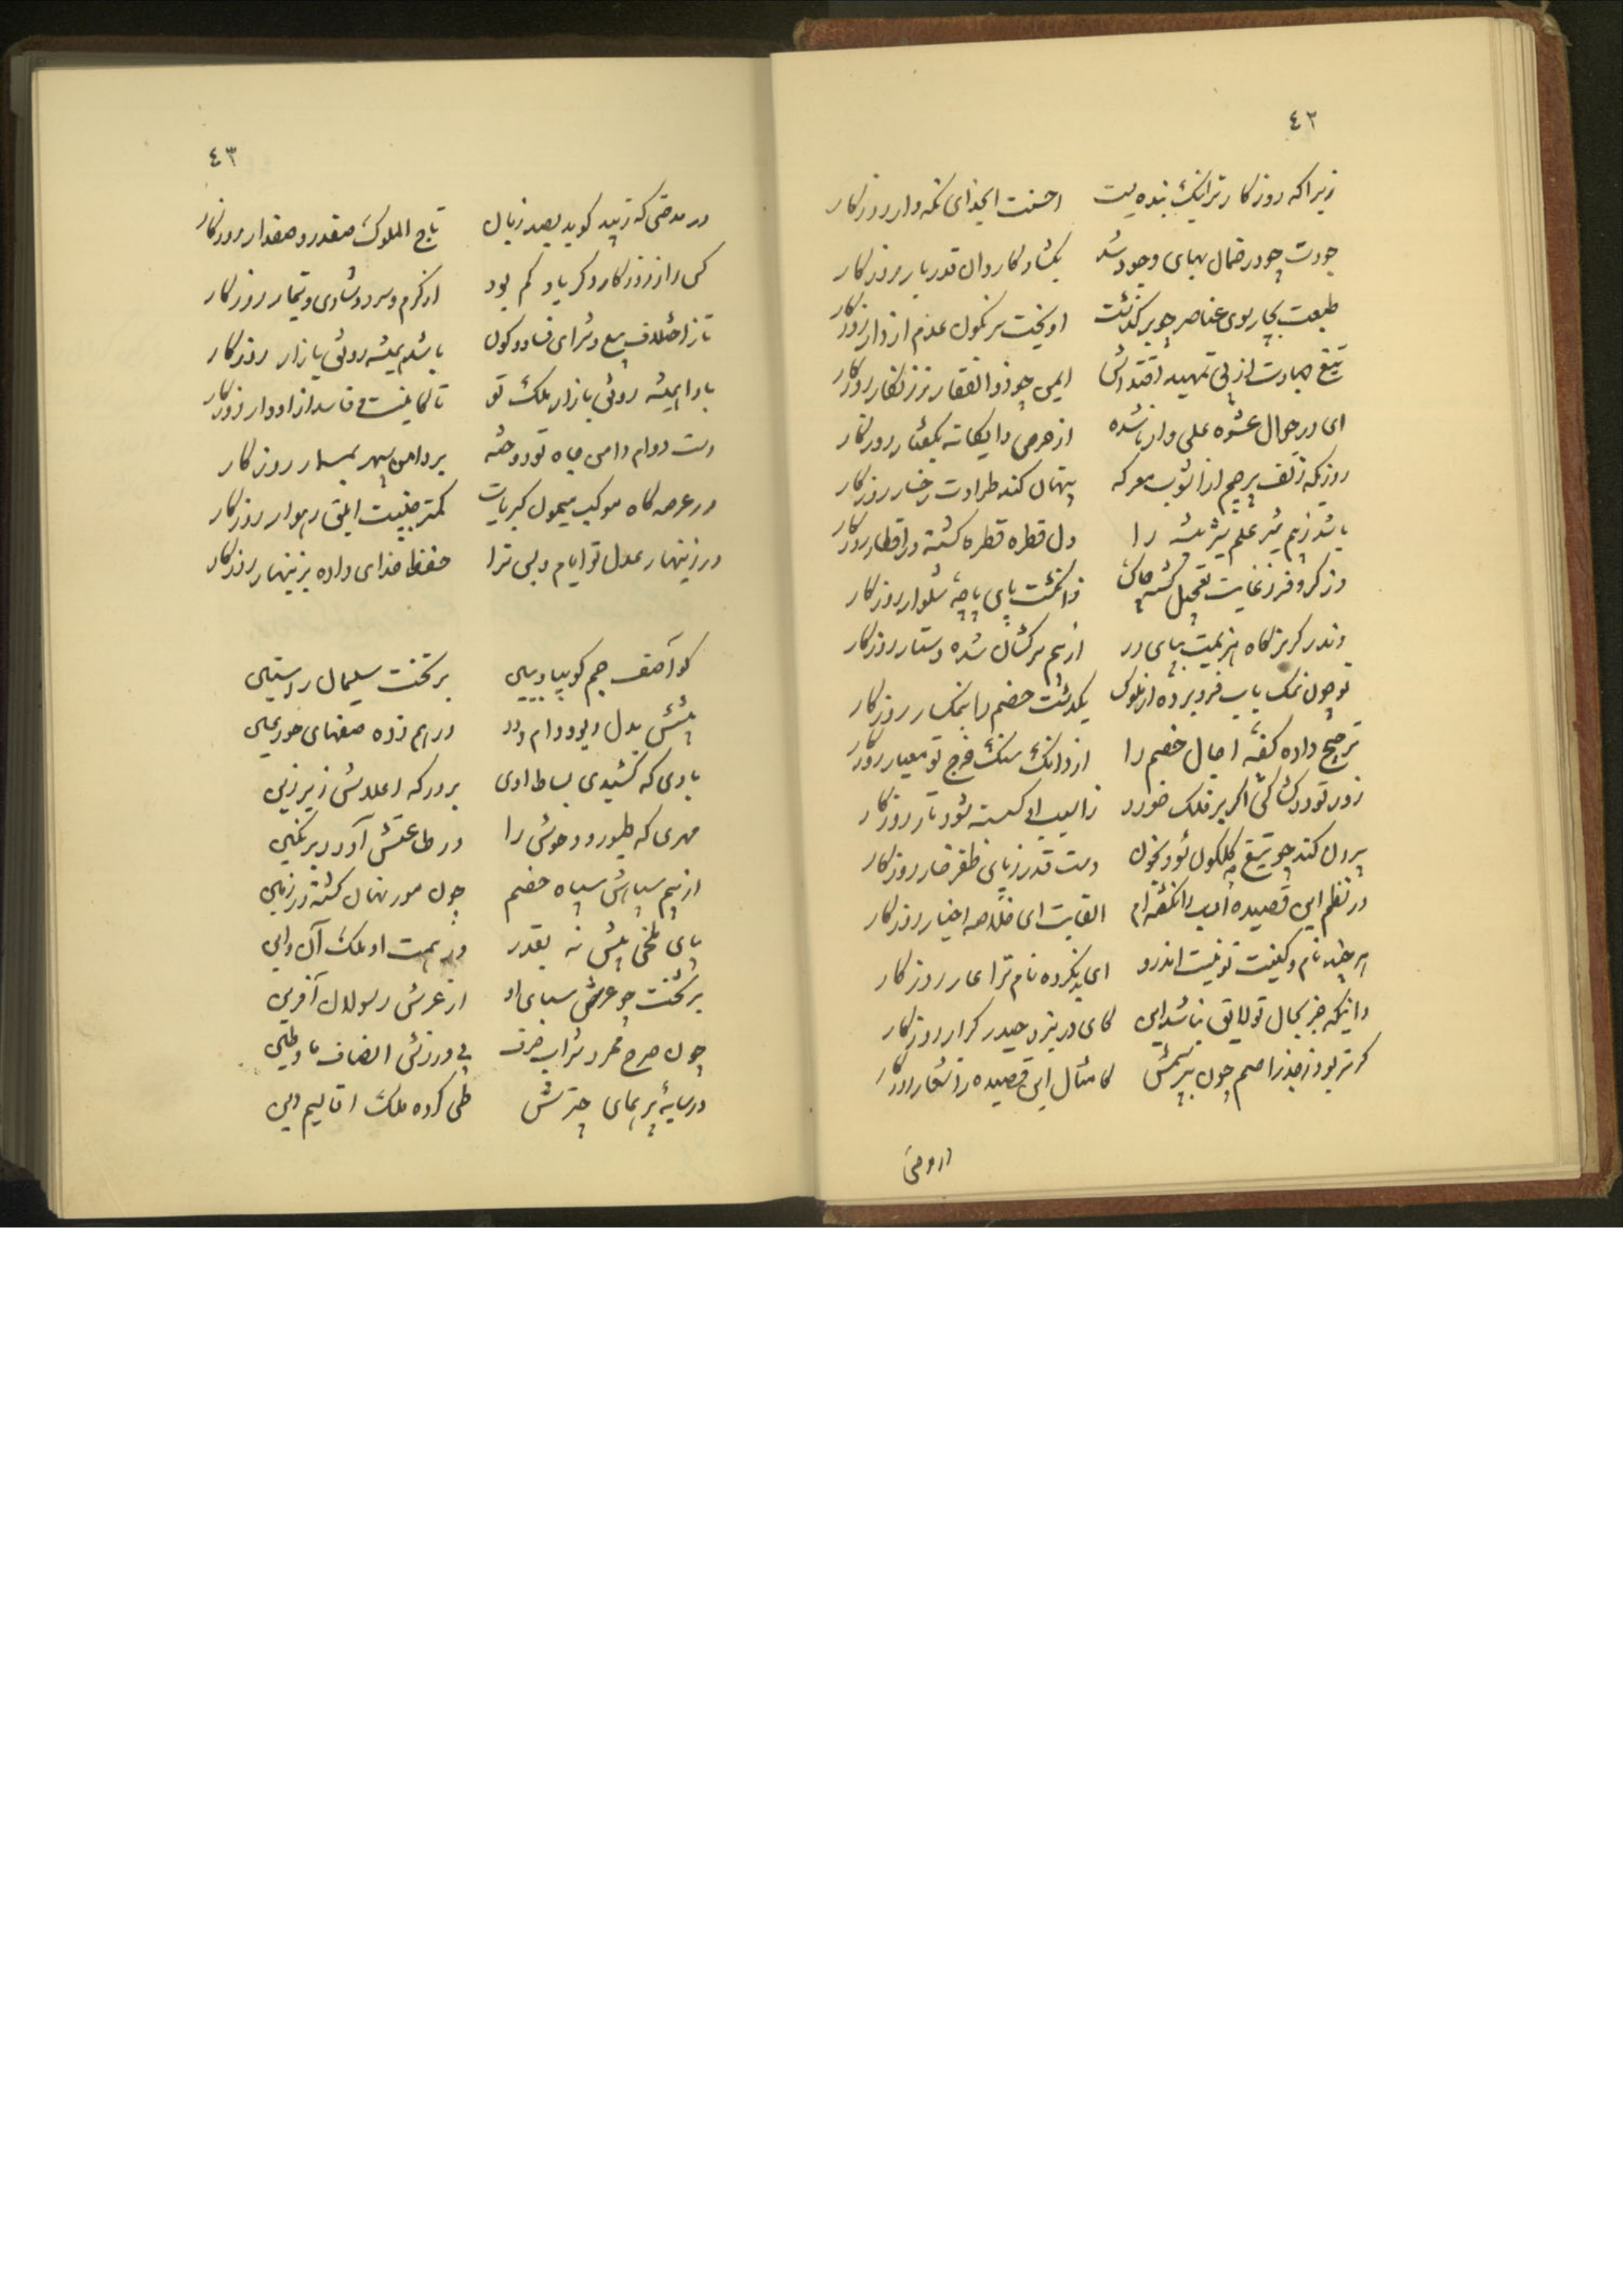 ٤٢
زیرا که روزکار ترا نیک بنده‌یست احسنت ای خدای نکه‌دار روزکار
جودت چو در ضمان بهای وجود شد بکشاد کاروان قدر بار روزکار
طبعت بچار سوی عناصر چو برکذشت آویخت سرنکون علم از دار روزکار
تیغ جهادت از پی تمهید اقتداش ایمن چو ذوالفقار ز زنکار روزکار
ای در جوال عشوه علی‌وار ناشده از حرص دانکانه بکفتار روزکار
روزیکه زلف پرچم از آشوب معرکه پنهان کند طراوت رخسار روزکار
باشد ز بیم شیر علم شیر بیشه را دل قطره قطره کشته در اقطار روزکار
وز کر و فر ز غایت تعجیل کشته چاک ز انکشت پای پاچهٔ شلوار روزکار
وندر کریزکاه هزیمت بپای در از بیم سرکشان شده دستار روزکار
تو چون نمک بآب فرو برده از ملوک یکدشت خصم را بنمکسار روزکار
ترجیح داده کفهٔ آجال خصم را از دانک سنک چرخ تو معیار روزکار
زور تو در کشاکش اکر بر فلک خورد ز آسیب او کسسته شود تار روزکار
بیرون کند چو تیغ تو کلکون شود بخون دست قدر ز پای ظفر خار روزکار
در نظم این قصیده ادب را نکفته‌ام القابت ای خلاصه اخیار روزکار
هر چند نام و کنیت تو نیست اندرو ای بد نکرده نام ترا عار روزکار
دانیکه جز بحال تو لایق نباشد این کای در نبرد حیدر کرار روزکار
کرتر بود ز جذر اصم چون بپرسمش کامثال این قصیده ز اشعار روزکار
در مدحتی
٤٣
در مدحتی که زیبد کوید بصد زبان تاج الملوک صفدر و صفدار روزکار
کس را ز روزکار دکر یاد کم بود از کرم و سرد و شادی و تیمار روزکار
تا ز اختلاف بیع و شرای فساد و کون باشد همیشه رونق بازار روزکار
بادا همیشه رونق بازار ملک تو تا کاینست و فاسد از ادوار روزکار
دست دوام دامن جاه تو دوخته بر دامن سپهر بمسمار روزکار
در عرصه‌کاه موکب میمون کبریات کمتر جنیبت ابلق رهوار روزکار
در زینهار عدل تو ایام و پس ترا حفظ خدای داده بزینهار روزکار
کو آصف جم کو بیا و ببین بر تخت سلیمان راستین
پیشش بدل دیو و دام و دد درهم زده صفهای حور عین
بادی که کشیدی بساط اوی بر درکه اعلاش زیر زین
مهری که طیور و وحوش را در طاعتش آورد بر نکین
از بیم سپاهش سپاه خصم چون مور نهان کشته در زمین
پای ملخی پیش نه بقدر در همت او ملک آن و این
بر تخت چو عرش سبای او از عرش رسولان آفرین
چون صرح ممرد شراب صرف بی ورزش انصاف ما و طین
در سایهٔ پر همای چترش طی کرده ملک اقالیم دین